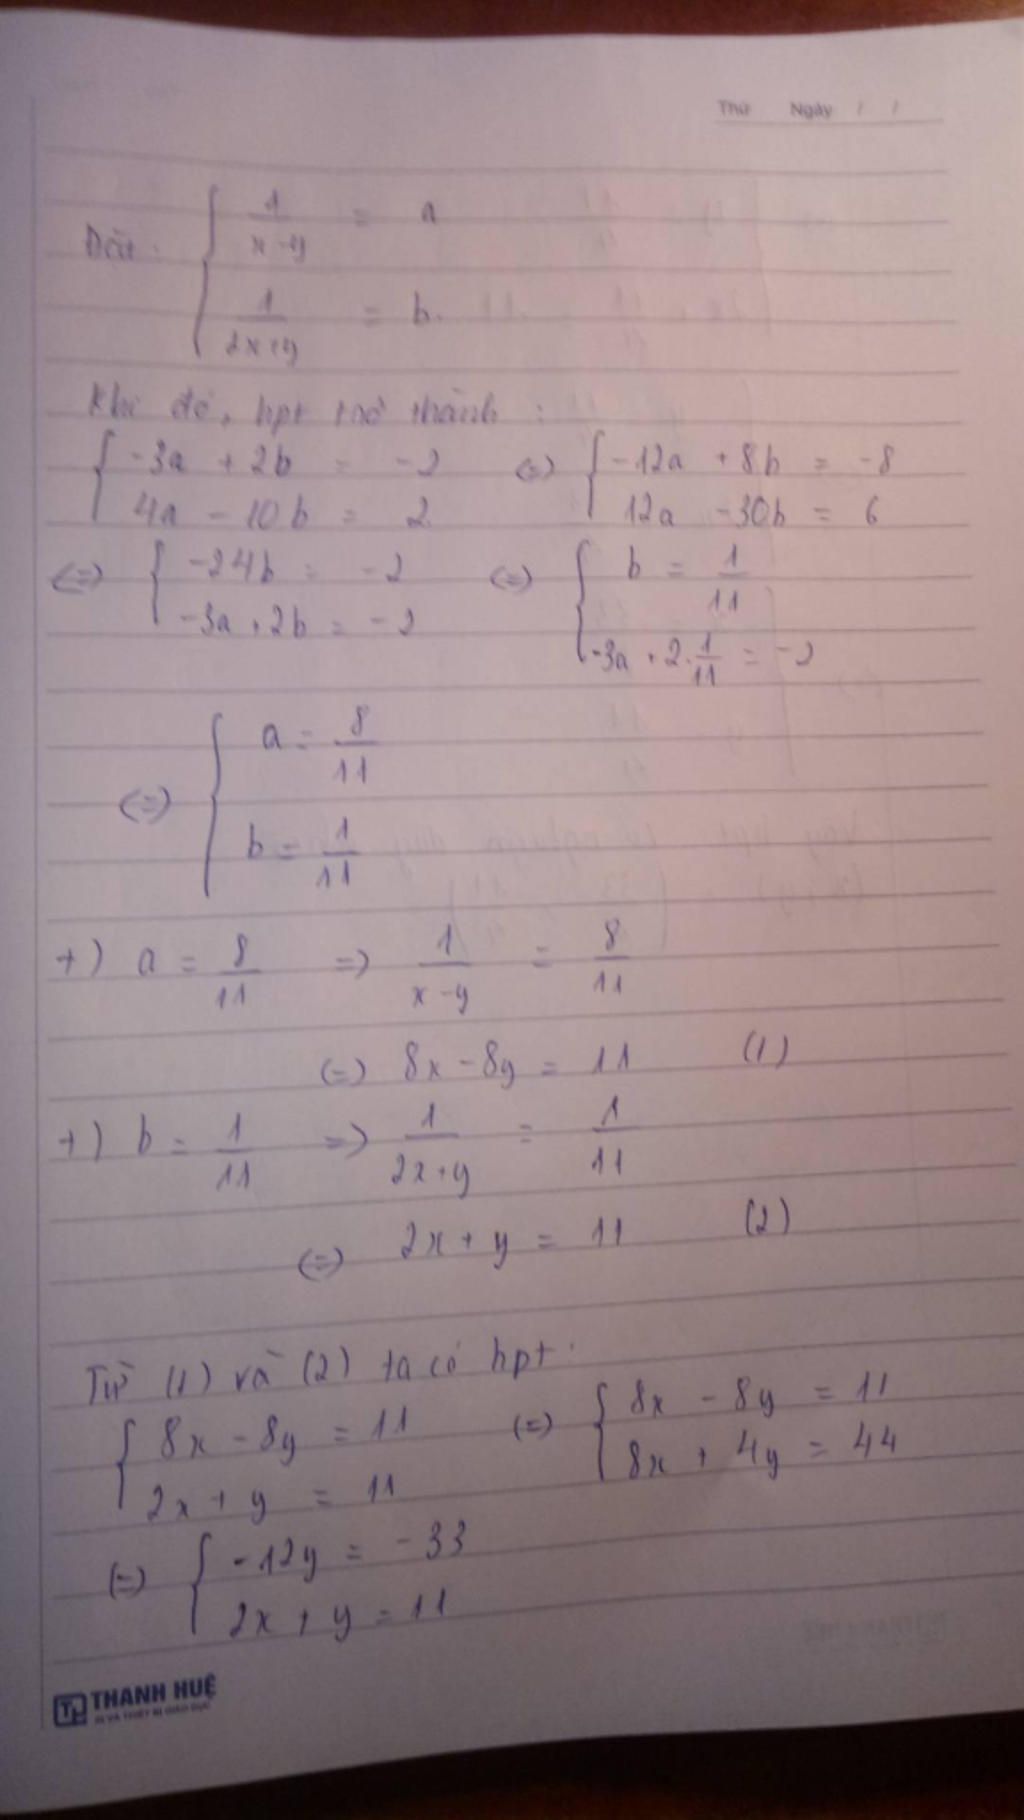 Thứ Ngày / /
Đặt: { 1/(x-y) = a
1/(2x+y) = b.
Khi đó, hpt trở thành:
{ -3a + 2b = -2 (=) { -12a + 8b = -8
4a - 10b = 2 12a - 30b = 6
(=) { -24b = -2 (=) { b = 1/11
-3a + 2b = -2 -3a + 2.1/11 = -2
(=) { a = 8/11
b = 1/11
+) a = 8/11 => 1/(x-y) = 8/11
(=) 8x - 8y = 11 (1)
+) b = 1/11 => 1/(2x+y) = 1/11
(=) 2x + y = 11 (2)
Từ (1) và (2) ta có hpt:
{ 8x - 8y = 11 (=) { 8x - 8y = 11
2x + y = 11 8x + 4y = 44
(=) { -12y = -33
2x + y = 11
THANH HUỆ